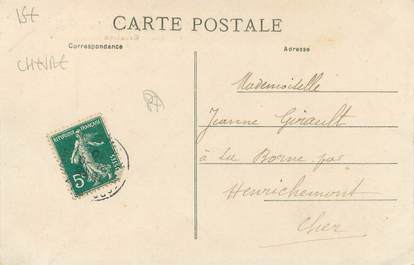 15€
CARTE POSTALE
Correspondance
Adresse
CHEVRE
RÉPUBLIQUE FRANÇAISE
5c
Mademoiselle
Jeanne Girault
à La Borne par
Henrichemont
Cher